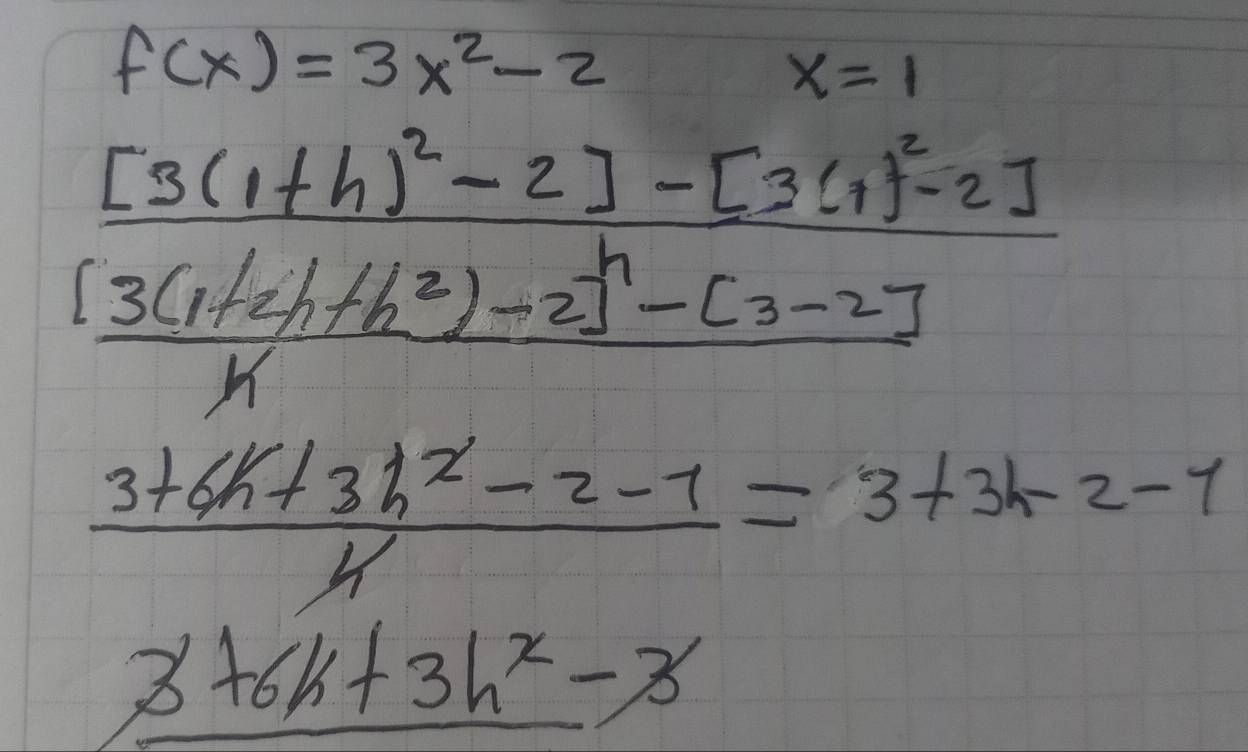 f(x) = 3x² - 2 x = 1
[3(1+h)² - 2] - [3(1)² - 2]
h
[3(1+2h+h²) - 2] - [3 - 2]
h
3 + 6h + 3h² - 2 - 1 = 3 + 3h - 2 - 1
h
3 + 6h + 3h² - 3